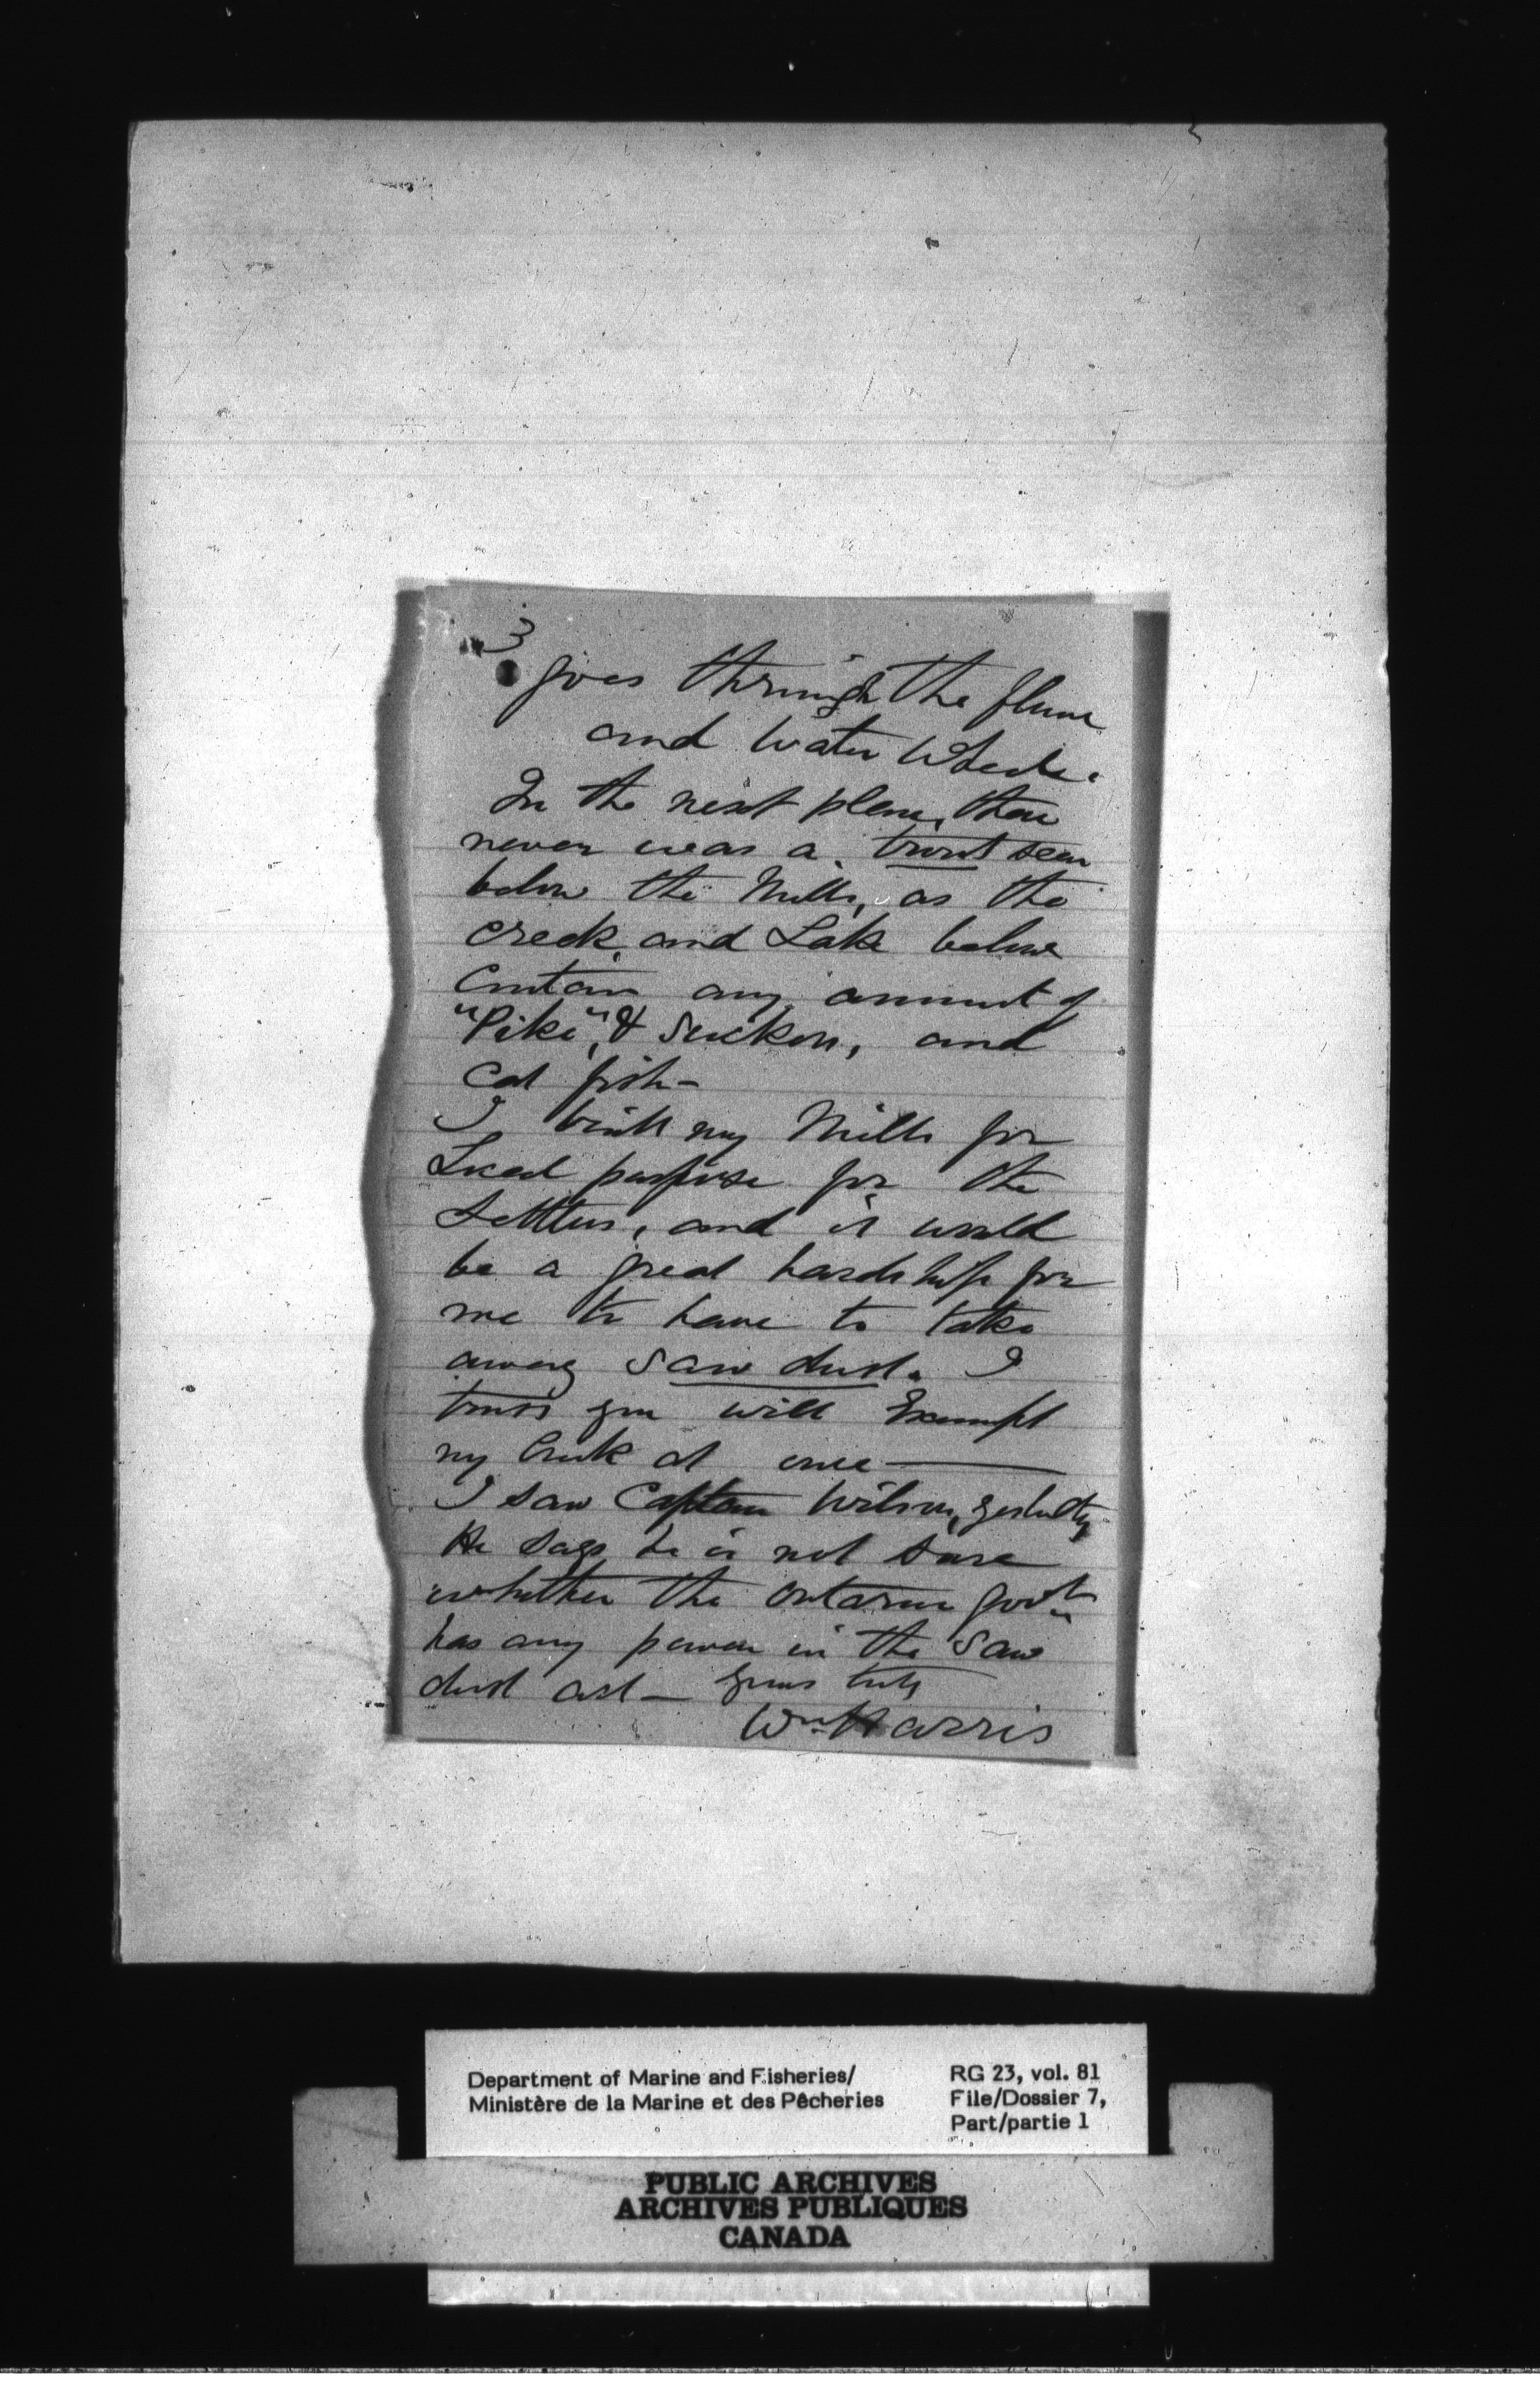 3
goes through the flume
and Water Wheels.
In the next place, there
never was a trout seen
below the Mills, as the
creek, and Lake below
Contain any amount of
"Pike", & Suckers, and
Cat fish -
I built my Mills for
Local purpose for the
Settlers, and it would
be a great hardship for
me to have to take
away saw dust. I
trust you will Exempt
my Creek at once —
I saw Captain Wilson, yesterday
He says he is not sure
whether the Ontario Govt
has any power in the Saw
dust act - Yours truly
Wm Harris
Department of Marine and Fisheries/
Ministère de la Marine et des Pêcheries
RG 23, vol. 81
File/Dossier 7,
Part/partie 1
PUBLIC ARCHIVES
ARCHIVES PUBLIQUES
CANADA